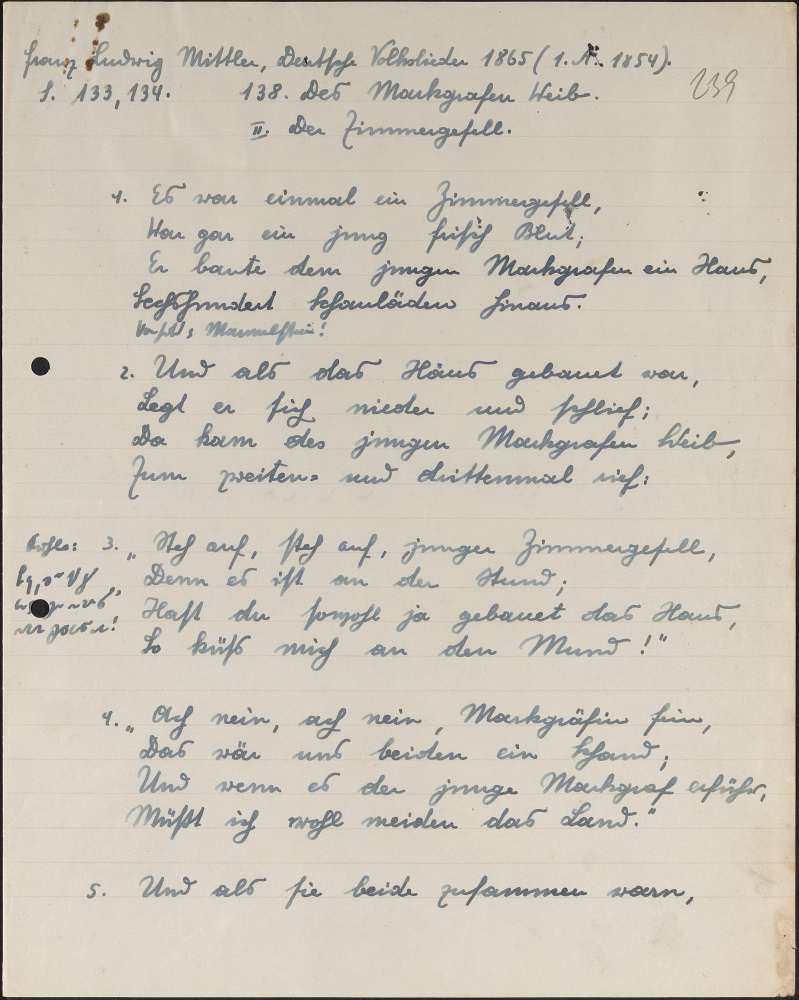 Franz Ludwig Mittler, Deutsche Volkslieder 1865 (1. A. 1854).
S. 133, 134. 138. Des Markgrafen Weib.
239
II. Der Zimmergesell.
1. Es war einmal ein Zimmergesell,
War gar ein jung frisch Blut;
Er baute dem jungen Markgrafen ein Haus,
Sechshundert Schauläden hinaus.
2. Und als das Haus gebauet war,
Legt er sich nieder und schlief;
Da kam des jungen Markgrafen Weib,
Zum zweiten= und drittenmal rief:
3. „Steh auf, steh auf, junger Zimmergesell,
Denn es ist an der Stund;
Hast du sowohl ja gebauet das Haus,
So küß mich an den Mund!"
4. „Ach nein, ach nein, Markgräfin fein,
Das wär uns beiden ein Schand;
Und wenn es der junge Markgraf erführ,
Müßt ich wohl meiden das Land."
5. Und als sie beide zusammen warn,